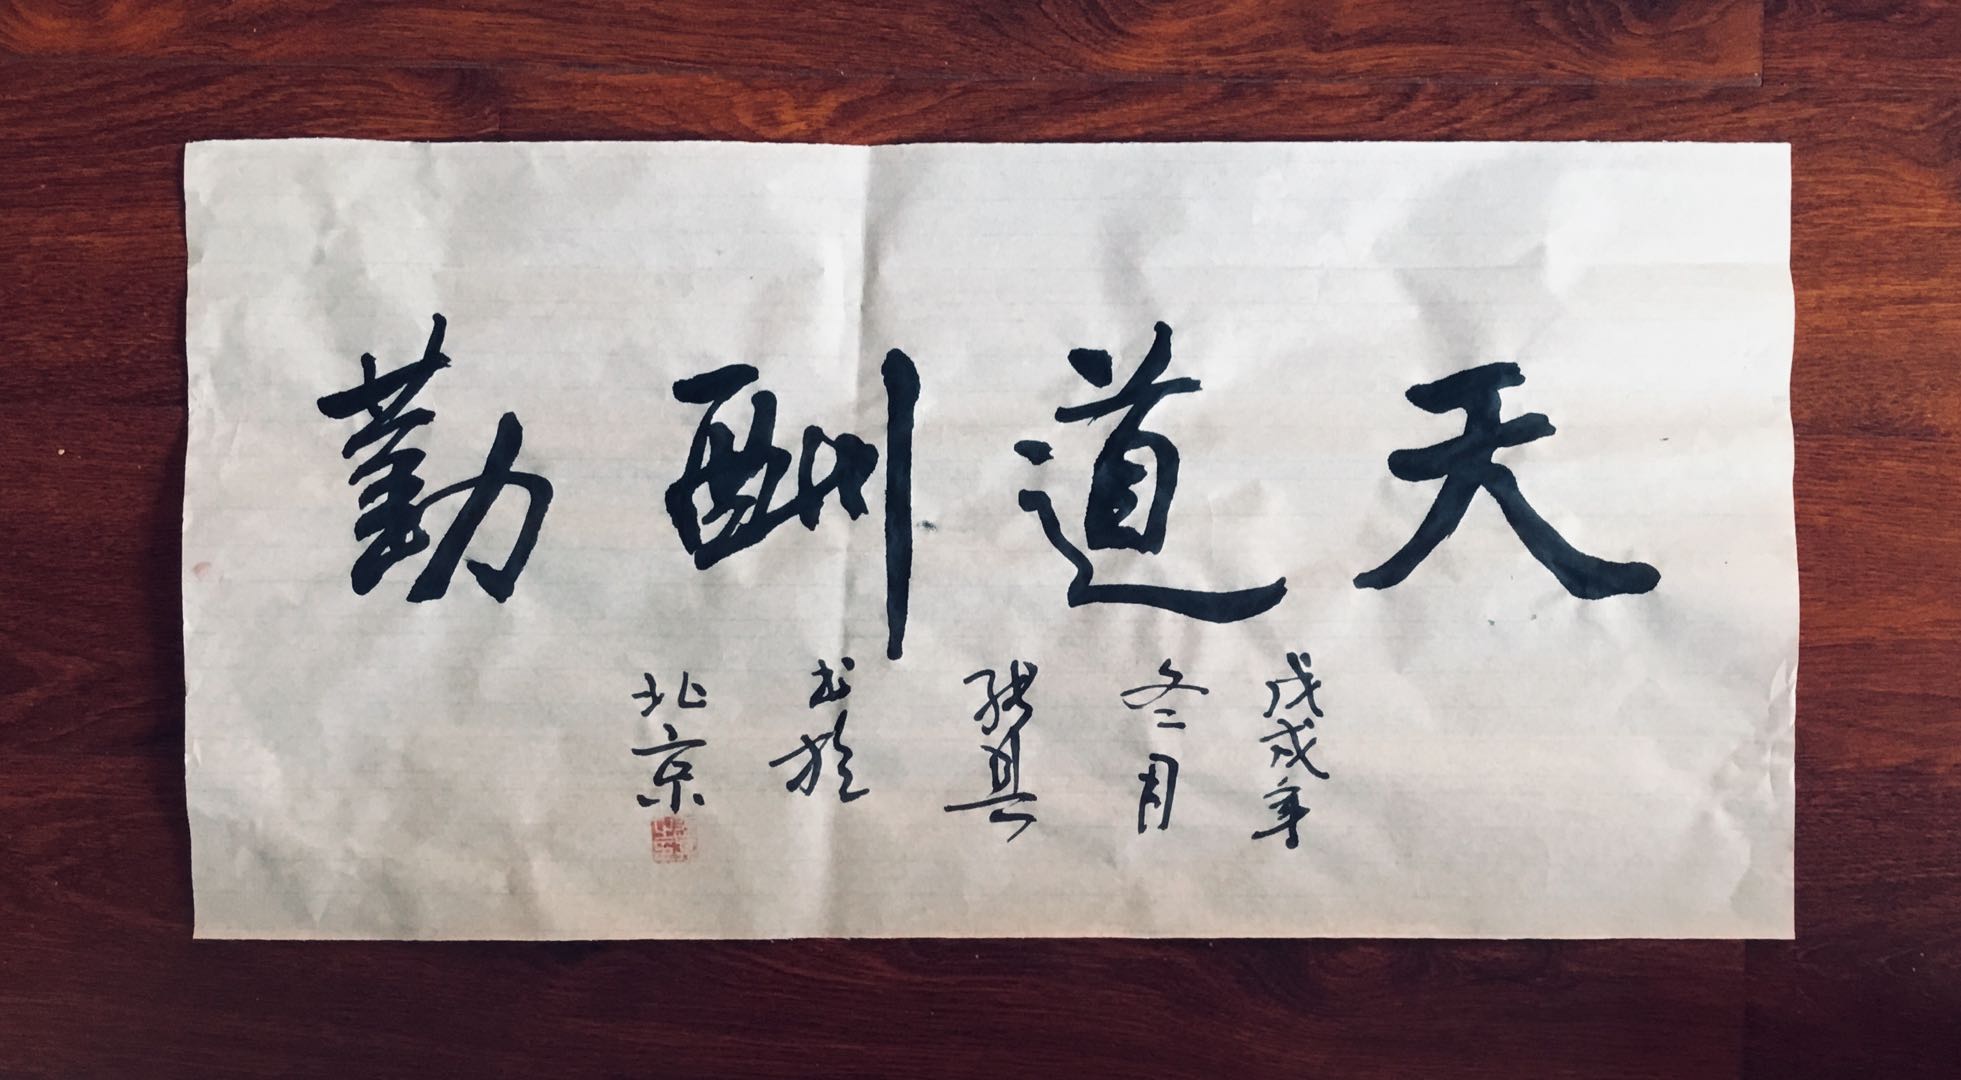 天道酬勤
戊戌年
冬月
书於
北京